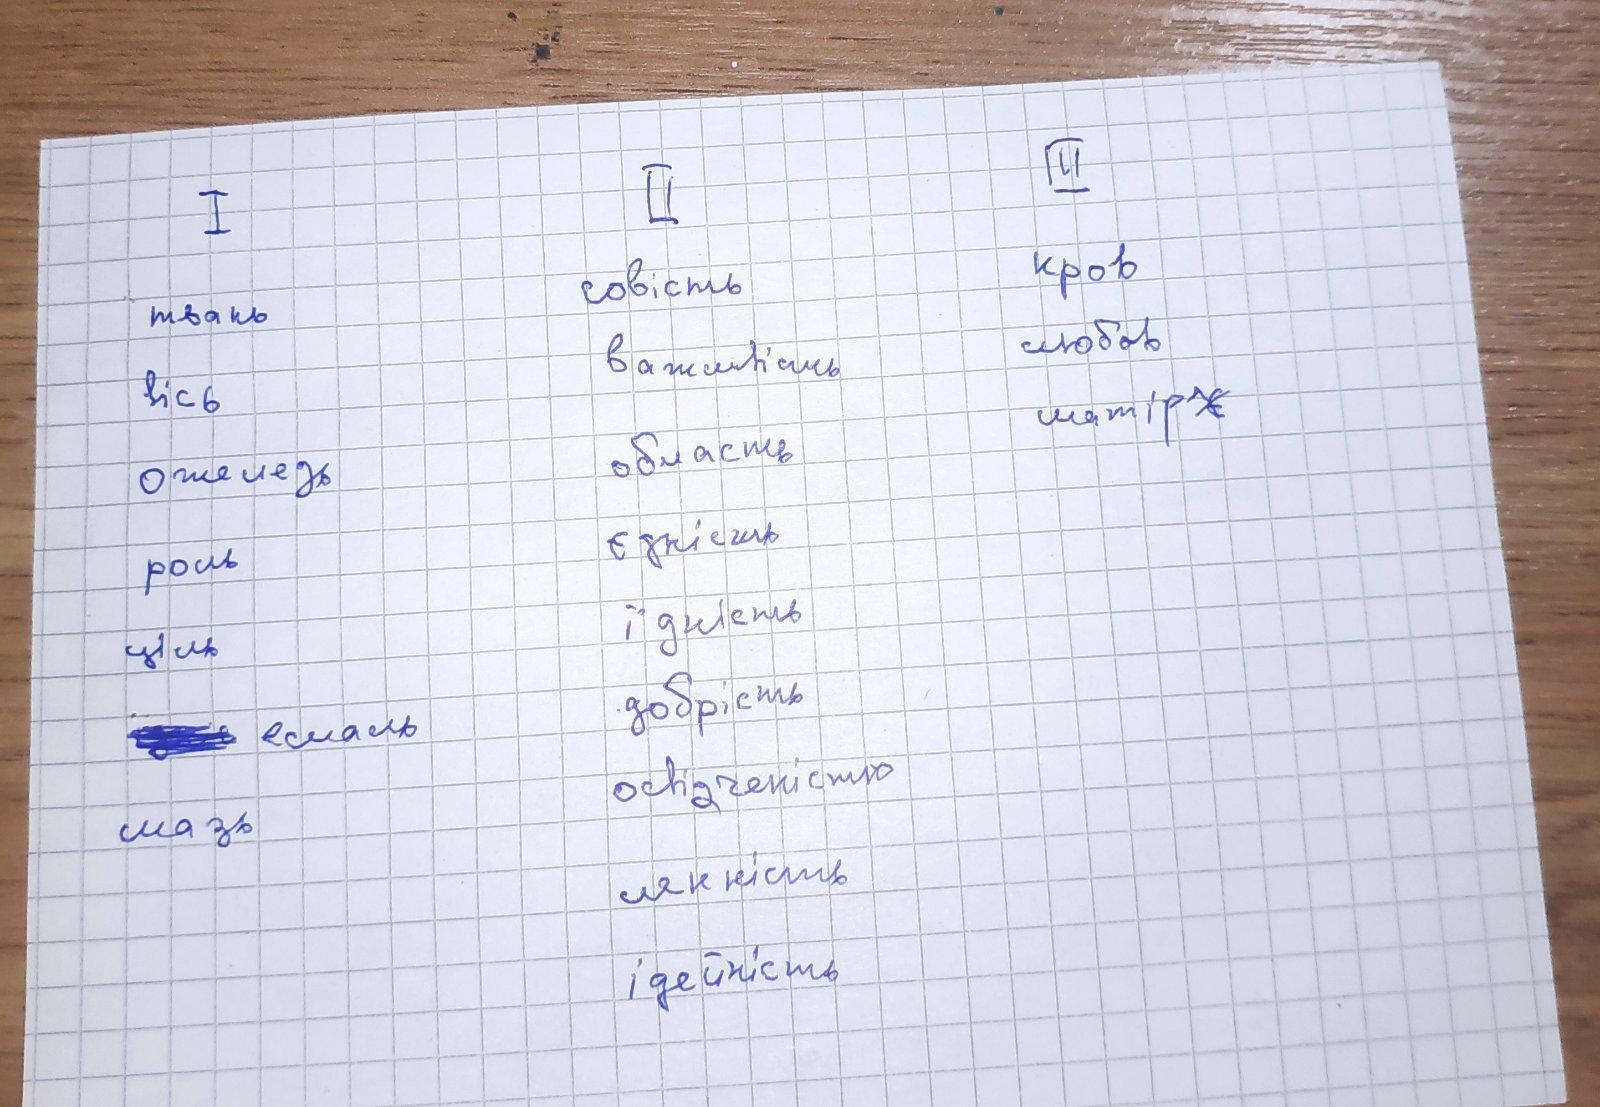 I
твань
вісь
ожеледь
роль
ціль
емаль
мазь
II
совість
важливість
область
єдність
їдність
добрість
освідченістю
ідейність
III
кров
любов
матір